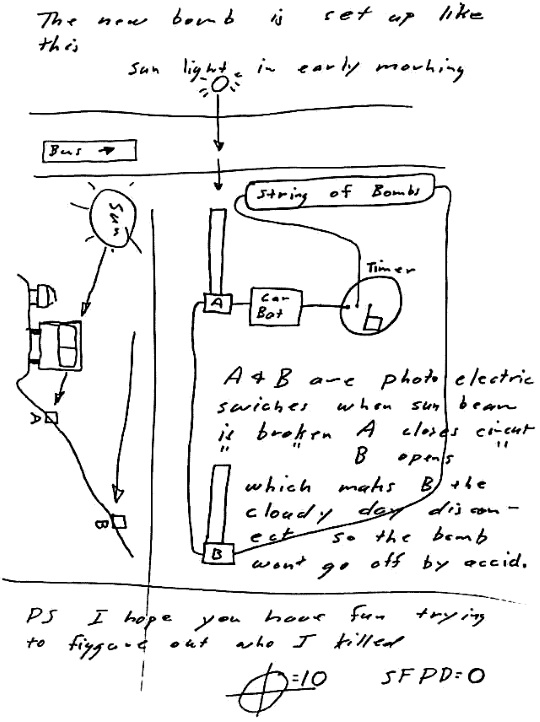 The new bomb is set up like
this
sun light in early morning
Bus
Sun
String of Bombs
Timer
A
Car
Bat
A
B
A & B are photo electric
swiches when sun beam
is broken A closes circut
" " B opens "
which maks B the
cloudy day discon-
ect so the bomb
wont go off by accid.
B
PS I hope you have fun trying
to figgure out who I killed
=10 SFPD=0